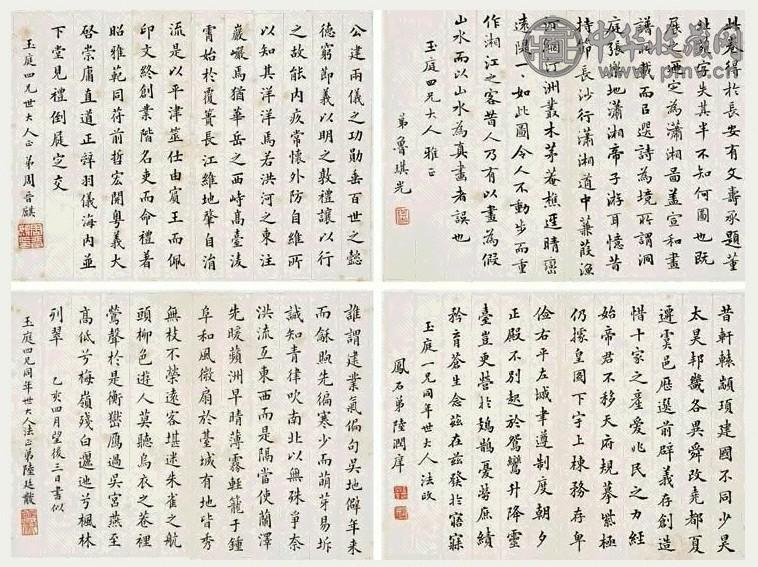 此卷得於長安有文壽承題董
北苑字失其半不知何圖也既
展之而定為瀟湘圖蓋宣和畫
譜載而以選詩為境所謂洞
庭張樂地瀟湘帝子游耳憶昔
持節長沙行瀟湘道中蒹葭漁
汀洲叢木茅菴樵逕晴巒
遠隄一一如此圖令人不動步而重
作湘江之客昔人乃有以畫為假
山水而以山水為真畫者誤也
玉庭四兄大人雅正
弟魯琪光
公建兩儀之功勛垂百世之懿
德窮即義以明之敦禮讓以行
之故能內疚常懷外防自維所
以知其洋洋焉若洪河之東注
巖巖焉猶華岳之西峙高臺淩
霄始於覆簣長江維地肇自涓
流是以平津筮仕由賓王而佩
印文終創業階名吏而命禮著
昭雅範同符前哲宏闡粵義大
啓崇庸直道正辭羽儀海內並
下堂見禮倒屣定交
玉庭四兄世大人正 弟周晉麒
昔軒轅顓頊建國不同少昊
太昊邦畿各異舜改堯都夏
遷虞邑歷選前辟義存創造
惜十家之產愛兆民之力經
始帝君不移天府規摹紫極
仍據皇圖下宇上棟務存卑
儉右平左墄聿遵制度朝夕
正殿不別起於鴛鸞升降靈
臺豈更營於鳷鵲憂勞庶績
矜育蒼生念茲在茲發於寤寐
玉庭一兄同年世大人法政
鳳石弟陸潤庠
誰謂建業氣偏句吳地僻年來
而龢煦先徧寒少而萌芽易坼
誠知青律吹南北以無殊爭奈
洪流互東西而是隔當使蘭澤
先暖蘋洲早晴薄霧輕籠于鍾
阜和風微扇於臺城有地皆秀
無枝不榮遠客堪迷朱雀之航
頭柳色遊人莫聽烏衣之巷裡
鶯聲於是衡嶽鴈過吳宮燕至
高低兮梅嶺殘白邐迤兮楓林
列翠 乙亥四月望後三日書似
玉庭四兄同年世大人法正弟陸廷黻
中华收藏网
www.pmv.cn